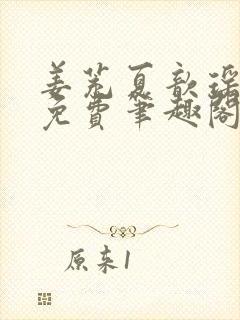 姜荒夏歆瑶
免费笔趣阁
原来1